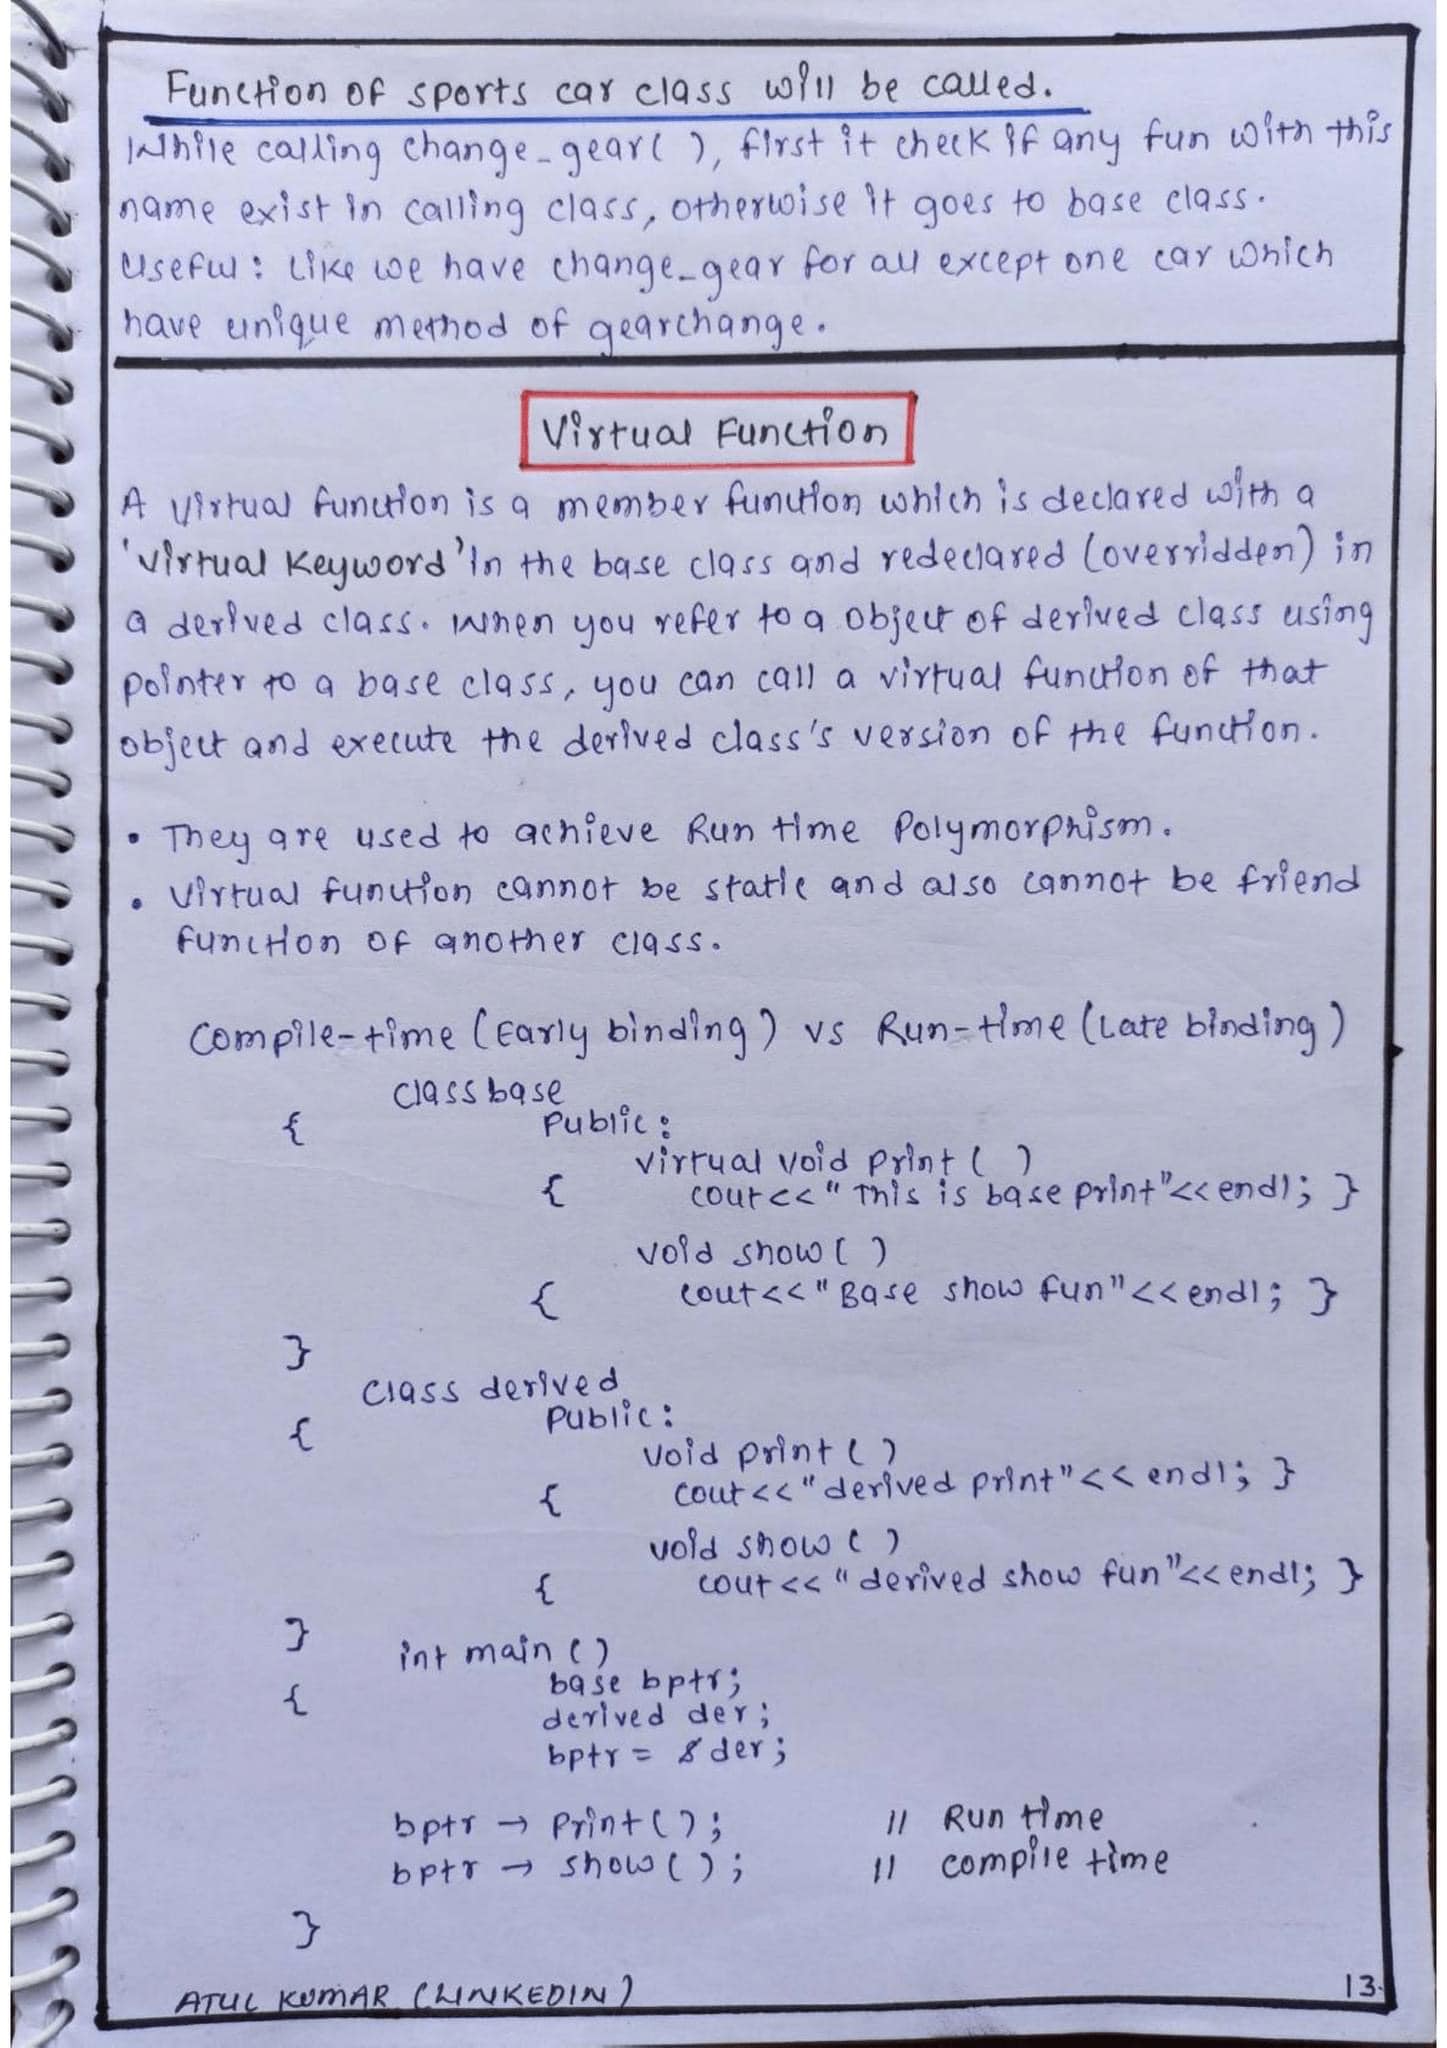 Function of sports car class will be called.
While calling change_gear( ), first it check if any fun with this
name exist in calling class, otherwise it goes to base class.
Useful: Like we have change_gear for all except one car which
have unique method of gearchange.
Virtual Function
A virtual function is a member function which is declared with a
'virtual Keyword' in the base class and redeclared (overridden) in
a derived class. When you refer to a object of derived class using
pointer to a base class, you can call a virtual function of that
object and execute the derived class's version of the function.
• They are used to achieve Run time Polymorphism.
• Virtual function cannot be static and also cannot be friend
function of another class.
Compile-time (Early binding) vs Run-time (Late binding)
class base
{ Public:
virtual void print ( )
{ cout<<"This is base print"<<endl; }
void show ( )
{ cout<<"Base show fun"<<endl; }
}
class derived
{ Public:
void print ( )
{ cout<<"derived print"<<endl; }
void show ( )
{ cout<<"derived show fun"<<endl; }
}
int main ( )
{ base bptr;
derived der;
bptr = &der;
bptr → Print ( ); // Run time
bptr → show ( ); // compile time
}
ATUL KUMAR (LINKEDIN) 13.